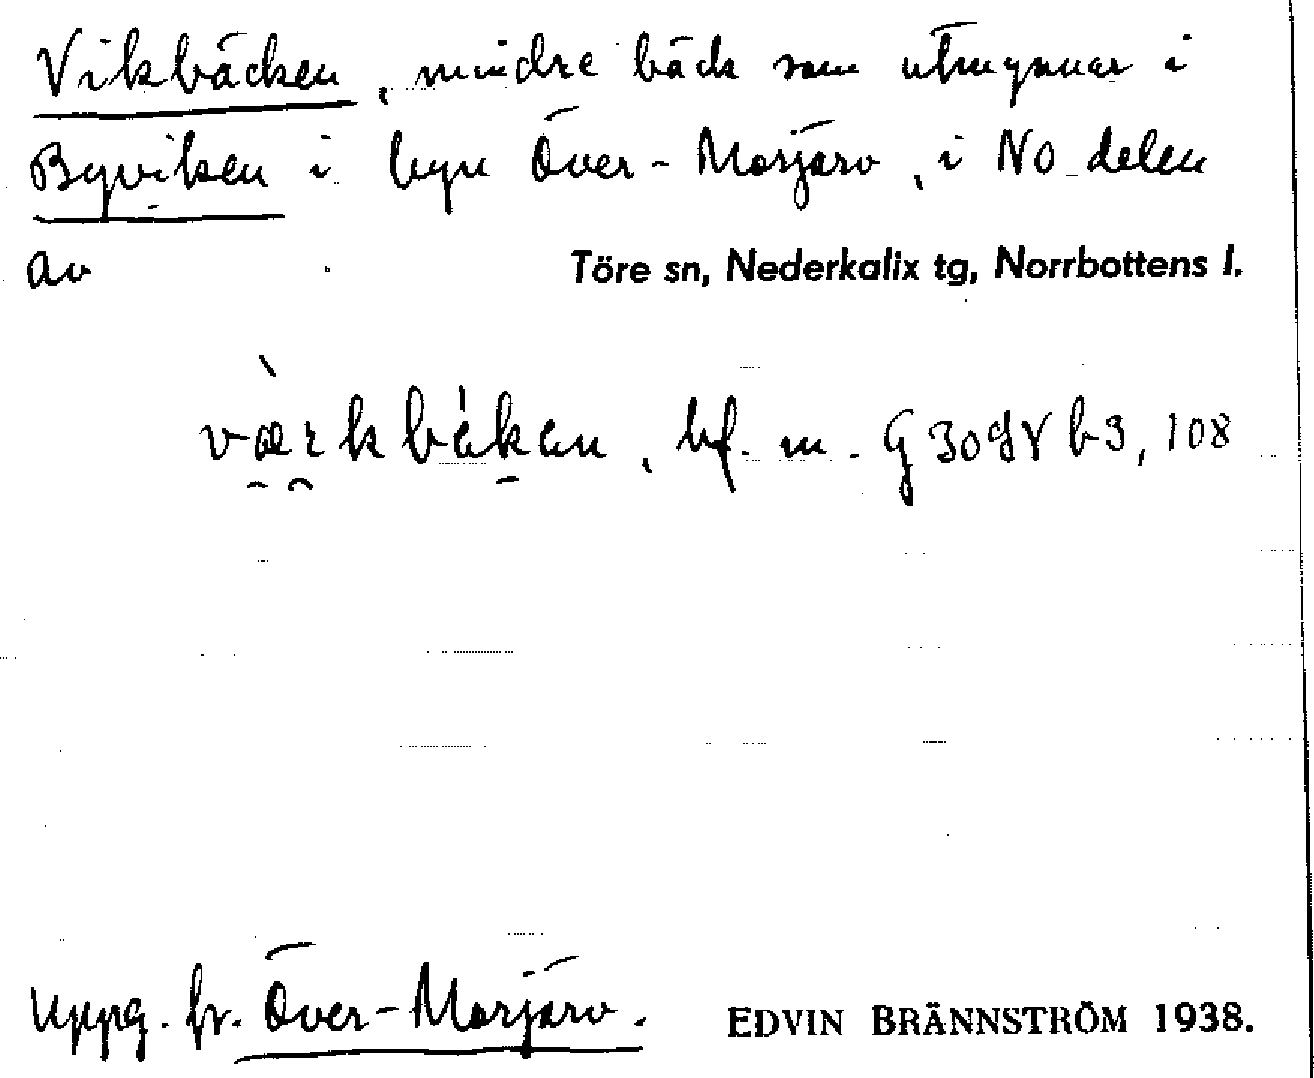 Vikbäcken, mindre bäck som utmynnar i
Byviken i byn Över-Morjärv, i NO delen
av Töre sn, Nederkalix tg, Norrbottens l.
bf. m.
Uppg. fr. Över-Morjärv. EDVIN BRÄNNSTRÖM 1938.